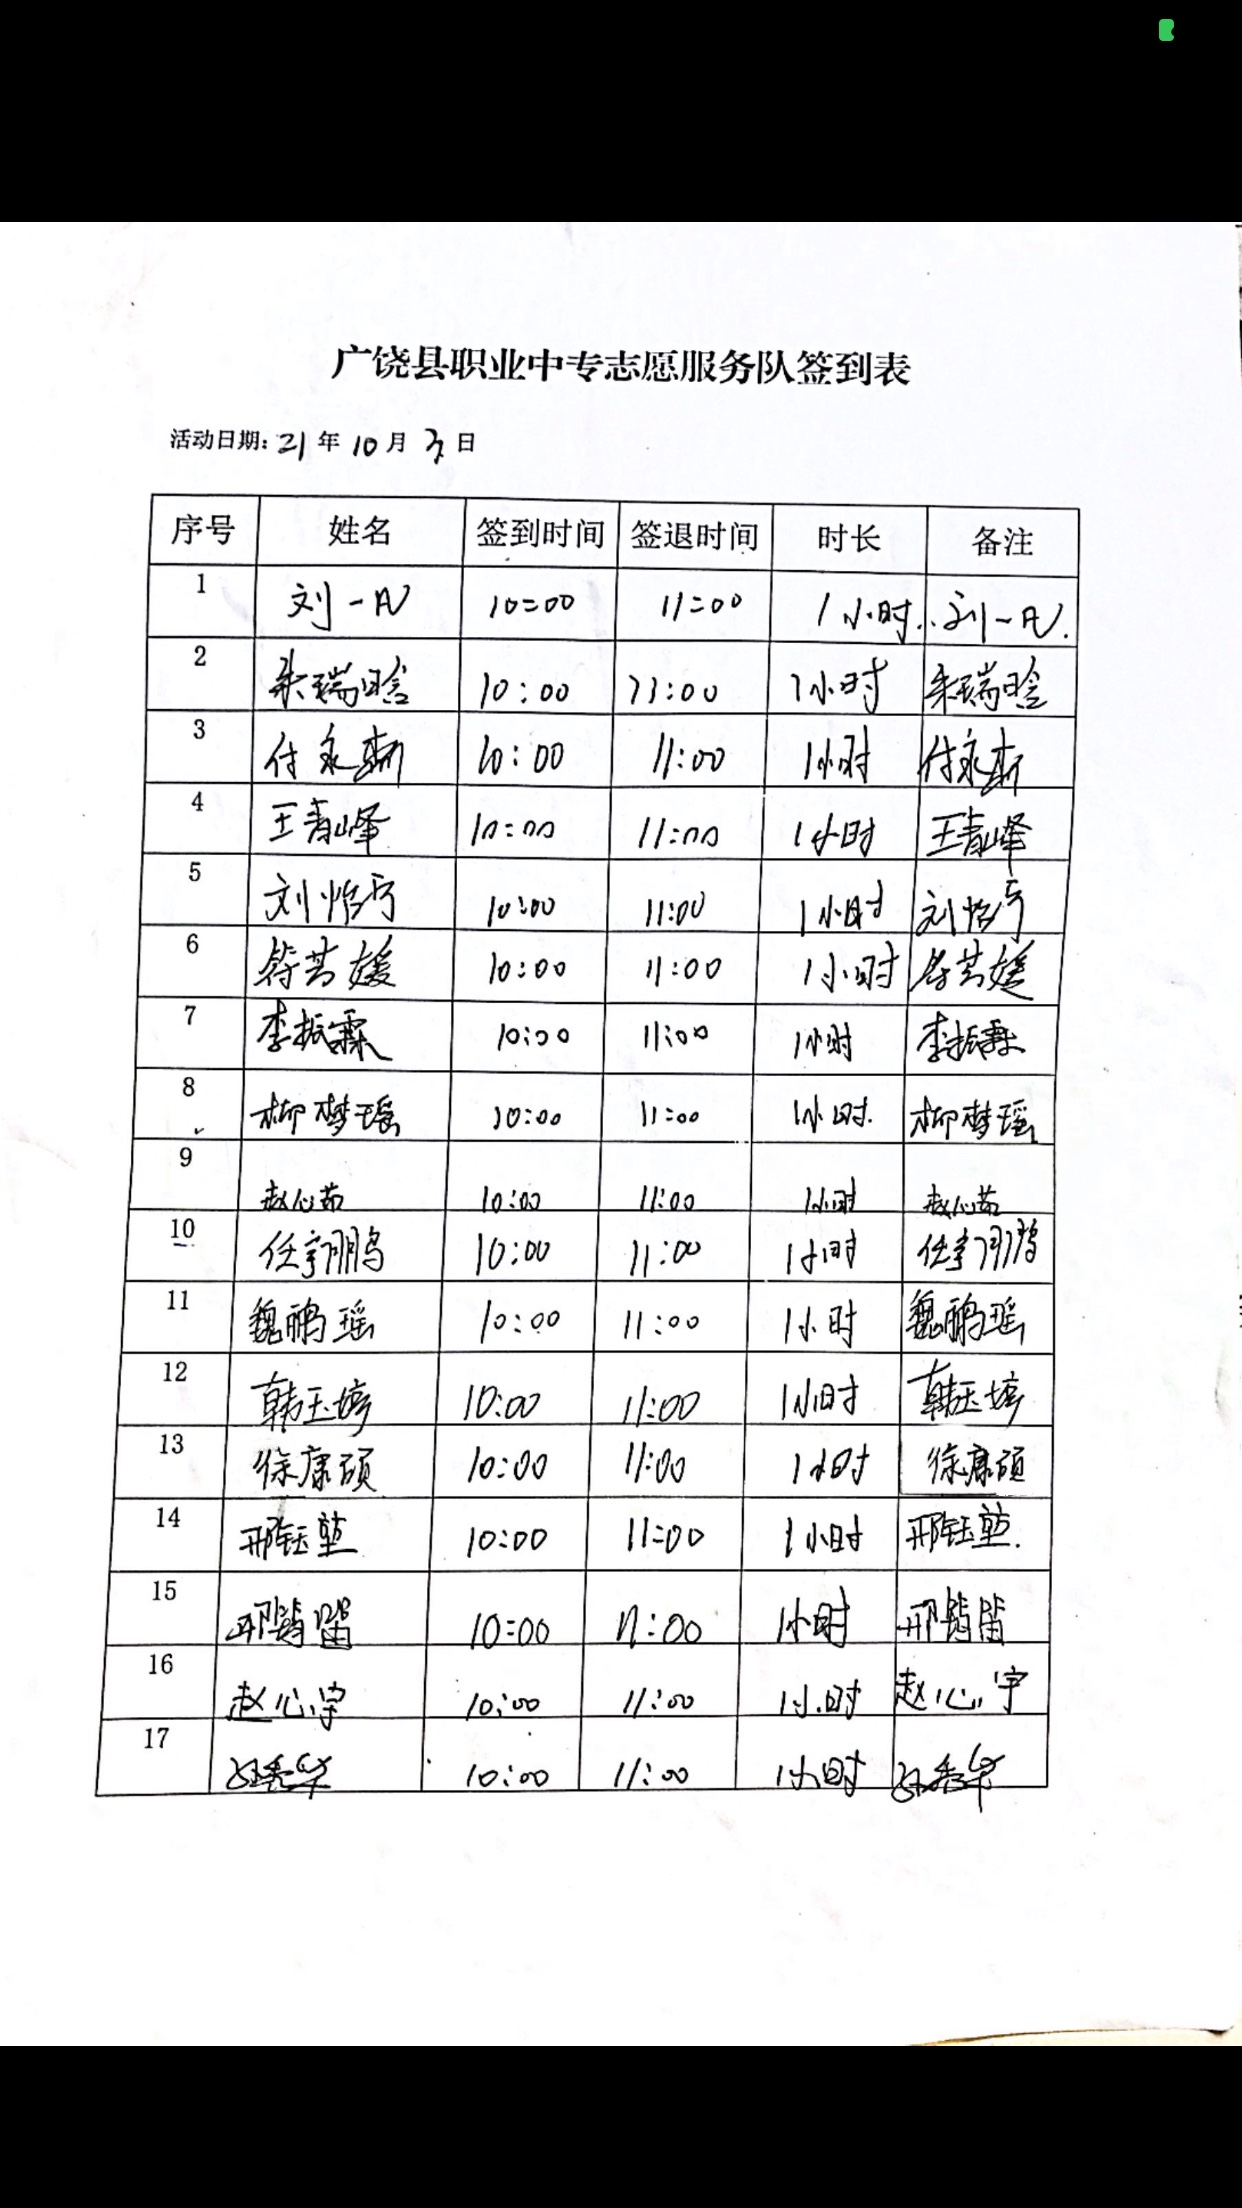 广饶县职业中专志愿服务队签到表
活动日期: 21 年 10 月 3 日
序号 姓名 签到时间 签退时间 时长 备注
1 刘一凡 10:00 11:00 1小时 刘一凡
2 朱瑞晗 10:00 11:00 1小时 朱瑞晗
3 付永 10:00 11:00 1小时 付永
4 王青峰 10:00 11:00 1小时 王青峰
5 刘怡 10:00 11:00 1小时 刘怡
6 10:00 11:00 1小时
7 李振霖 10:00 11:00 1小时 李振霖
8 柳梦瑶 10:00 11:00 1小时 柳梦瑶
9 赵心茹 10:00 11:00 1小时 赵心茹
10 任宇鹏 10:00 11:00 1小时 任宇鹏
11 魏鹏瑶 10:00 11:00 1小时 魏鹏瑶
12 韩玉婷 10:00 11:00 1小时 韩玉婷
13 徐康硕 10:00 11:00 1小时 徐康硕
14 邢钰堃 10:00 11:00 1小时 邢钰堃
15 邢 10:00 11:00 1小时 邢
16 赵心宇 10:00 11:00 1小时 赵心宇
17 10:00 11:00 1小时